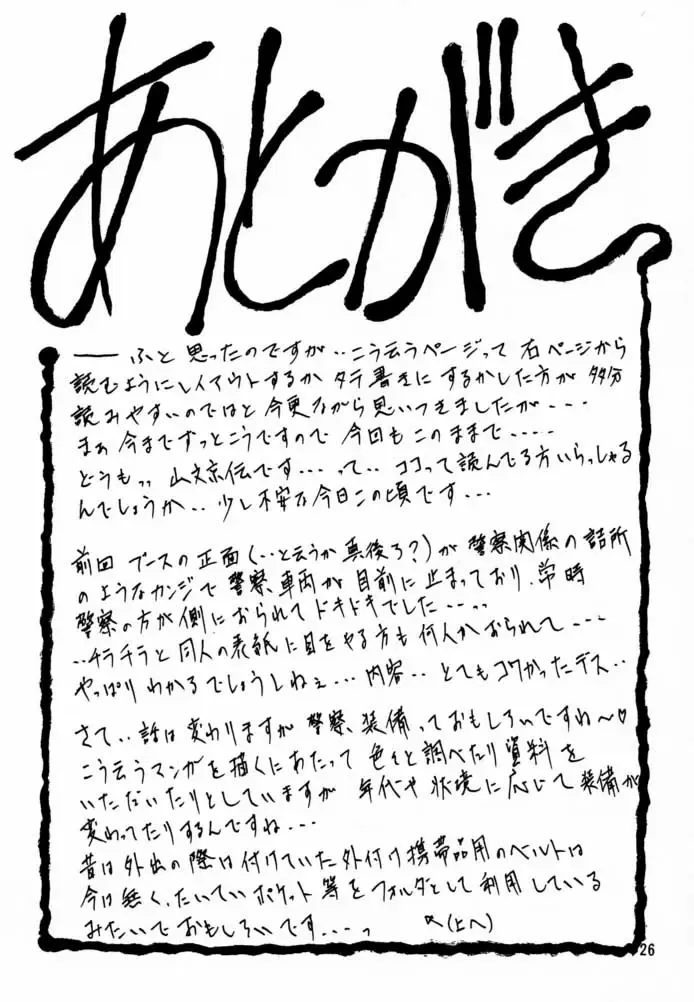 あとがき
――ふと思ったのですが‥こう云うページって右ページから
読むようにレイアウトするかタテ書きにするかした方が多分
読みやすいのではと今更ながら思いつきましたが・・・
まぁ今までずっとこうですので今回もこのままで・・・・・
どうもっ、山文京伝です・・・・って‥ココって読んでる方いらっしゃる
んでしょうか‥少し不安な今日この頃です・・・
前回ブースの正面(‥と云うか真後ろ?)が警察関係の詰所
のようなカンジで警察車両が目前に止まっており、常時
警察の方が側におられてドキドキでした・・・・っ
‥チラチラと同人の表紙に目をやる方も何人かおられて・・・・
やっぱりわかるでしょうしねぇ・・・内容‥とてもコワかったデス‥
さて‥話は変わりますが警察装備っておもしろいですね〜♡
こう云うマンガを描くにあたって色々と調べたり資料を
いただいたりとしていますが年代や状況に応じて装備が
変わってたりするんですね・・・
昔は外出の際は付けていた外付け携帯品用のベルトは
今は無く、たいていポケット等をフォルダとして利用している
みたいでおもしろいです・・・・っ (上へ)
26